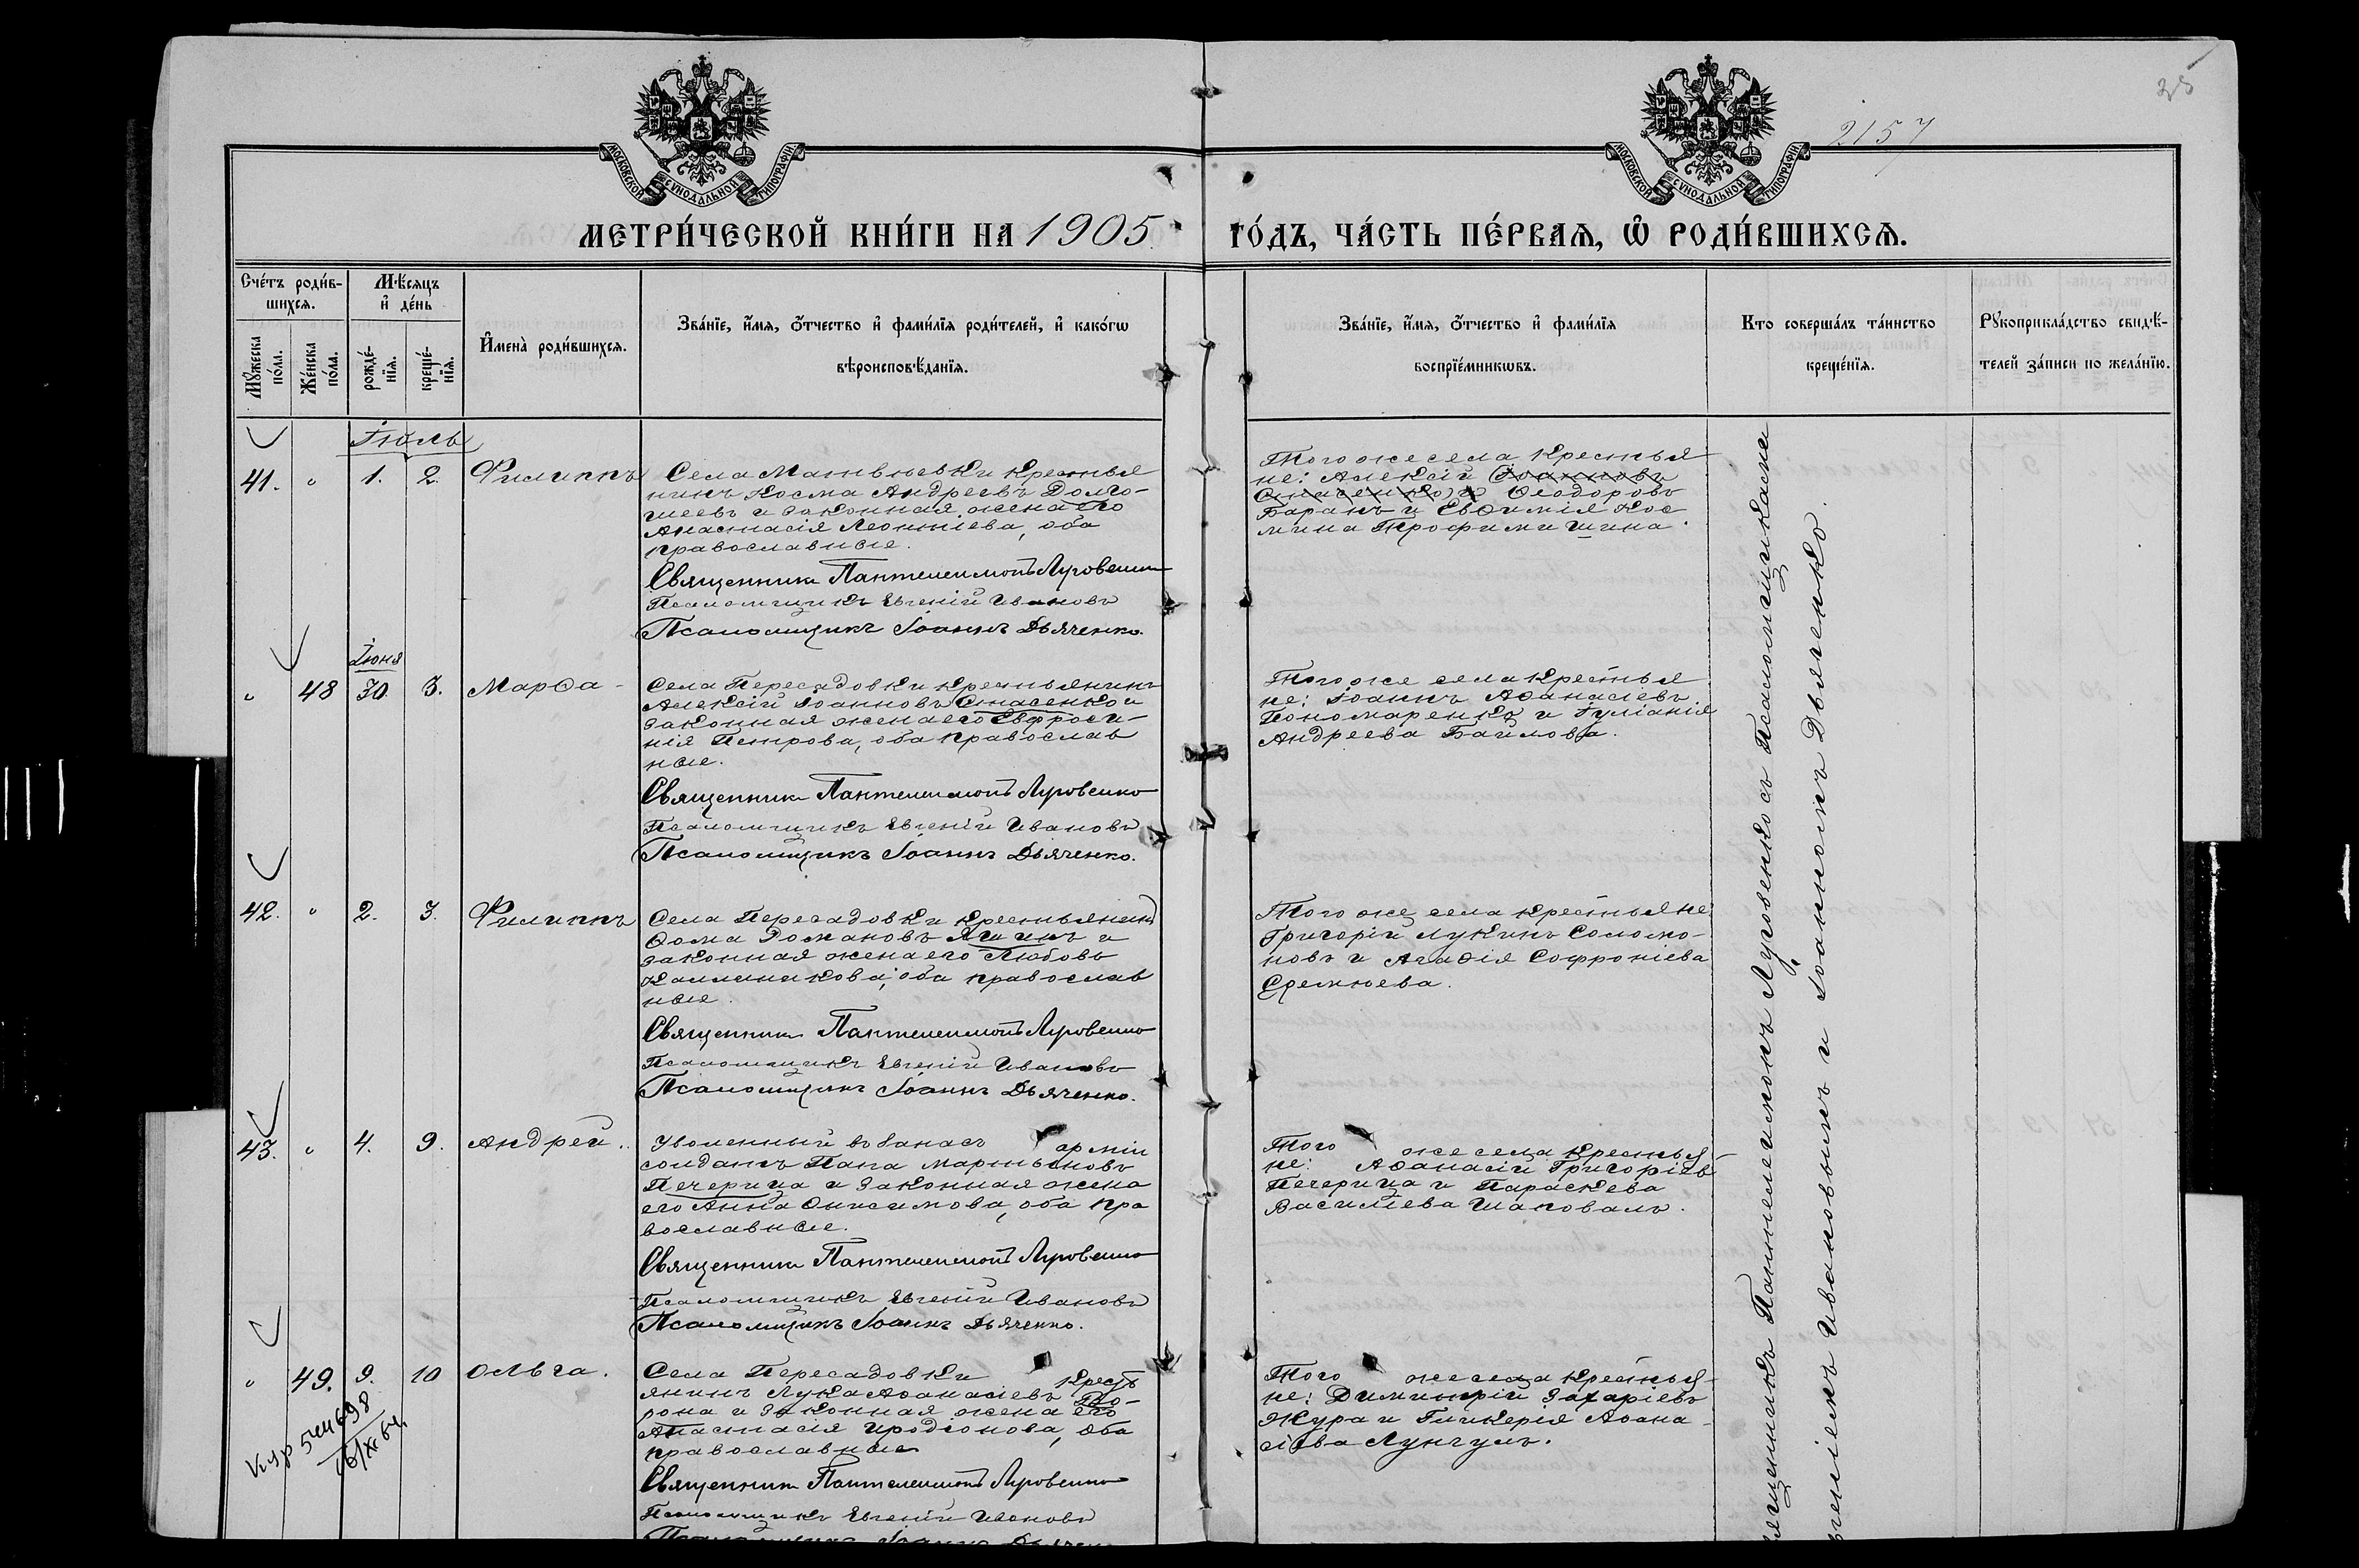 35
2157
МОСКОВСКОЙ СѴНОДАЛЬНОЙ ТИПОГРАФІИ
МОСКОВСКОЙ СѴНОДАЛЬНОЙ ТИПОГРАФІИ
МЕТРИ́ЧЕСКОЙ КНИ́ГИ НА 1905
ГО́ДЪ, ЧА́СТЬ ПЕ́РВАѦ, Ѡ҆ РОДИ́ВШИХСѦ.
Сче́тъ роди́в-
шихсѧ.
Мѣ́сѧцъ
и҆ де́нь
Мꙋ́жеска
по́ла.
Же́нска
по́ла.
рожде́-
нїѧ.
креще́-
нїѧ.
И҆мена̀ роди́вшихсѧ.
Зва́нїе, и҆́мѧ, ѻ҆́тчество и҆ фами́лїѧ роди́телей, и҆ како́гѡ
вѣроисповѣ́данїѧ.
Зва́нїе, и҆́мѧ, ѻ҆́тчество и҆ фами́лїѧ
воспрїе́мникѡвъ.
Кто соверша́лъ та́инство
креще́нїѧ.
Рꙋкоприкла́дство свидѣ́-
телей за́писи по жела́нїю.
Іюль
41. " 1. 2. Филиппъ
Села Матвѣевки крестья
нинъ Косма Андреевъ Долго-
шеевъ и законная жена его
Анастасія Леонтіева, оба
православные.
Священникъ Пантелеимонъ Луговенко
Псаломщикъ Евгеній Ивановъ
Псаломщикъ Іоаннъ Дьяченко.
Того же села крестья
не: Алексій Іоанновъ
Стасенко и Ѳеодоровъ
Баранъ и Евѳимія Кос
мина Трофимишина.
Іюня
" 48 30. 3. Марѳа
Села Пересадовки крестьянинъ
Алексій Іоанновъ Стасенко и
законная жена его Евфроси-
нія Петрова, оба православ
ные.
Священникъ Пантелеимонъ Луговенко
Псаломщикъ Евгеній Ивановъ
Псаломщикъ Іоаннъ Дьяченко.
Того же села крестья
не: Іоаннъ Аѳанасіевъ
Пономаренко и Іуліанія
Андреева Баилова.
42. " 2. 3. Филиппъ
Села Пересадовки крестьянинъ
Ѳома Романовъ Яшинъ и
законная жена его Любовь
Каллиникова, оба православ
ные.
Священникъ Пантелеимонъ Луговенко
Псаломщикъ Евгеній Ивановъ
Псаломщикъ Іоаннъ Дьяченко.
Того же села крестьяне
Григорій Лукинъ Соломо-
новъ и Агаѳія Софроніева
43. " 4. 9. Андрей.
Уволенный въ запасъ арміи
солдатъ Папа Мартыновъ
Печерица и законная жена
его Анна Онисимова, оба пра
вославные.
Священникъ Пантелеимонъ Луговенко
Псаломщикъ Евгеній Ивановъ
Псаломщикъ Іоаннъ Дьяченко.
Того же села крестья-
не: Аѳанасій Григоріевъ
Печерица и Параскева
Василіева Шаповалъ.
" 49. 9. 10 Ольга.
Села Пересадовки крест
янинъ Лука Аѳанасіевъ
рона и законная жена его
Анастасія Иродіонова, оба
православные
Священникъ Пантелеимонъ Луговенко
Псаломщикъ Евгеній Ивановъ
Псаломщикъ Іоаннъ Дьячен
Того же села крестья-
не: Димитрій Захаріевъ
Жура и Гликерія Аѳана-
сіева Лунгулъ.
544698
ященникъ Пантелеимонъ Луговенко съ Псаломщиками
вгеніемъ Ивановымъ и Іоанномъ Дьяченко.